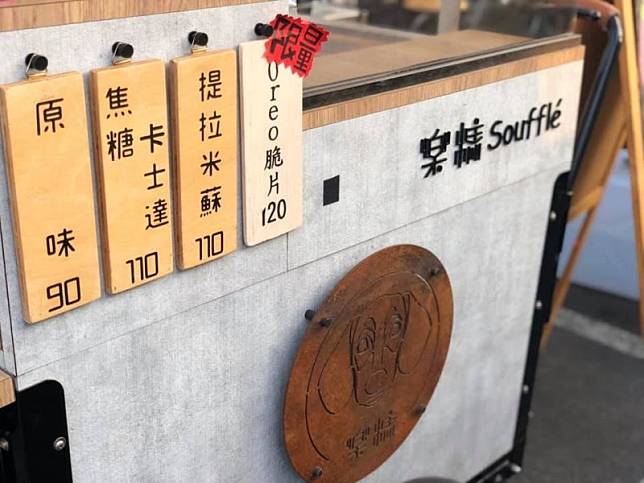 原味
90
焦糖
卡士達
110
提拉米蘇
110
限量
Oreo脆片
120
Soufflé